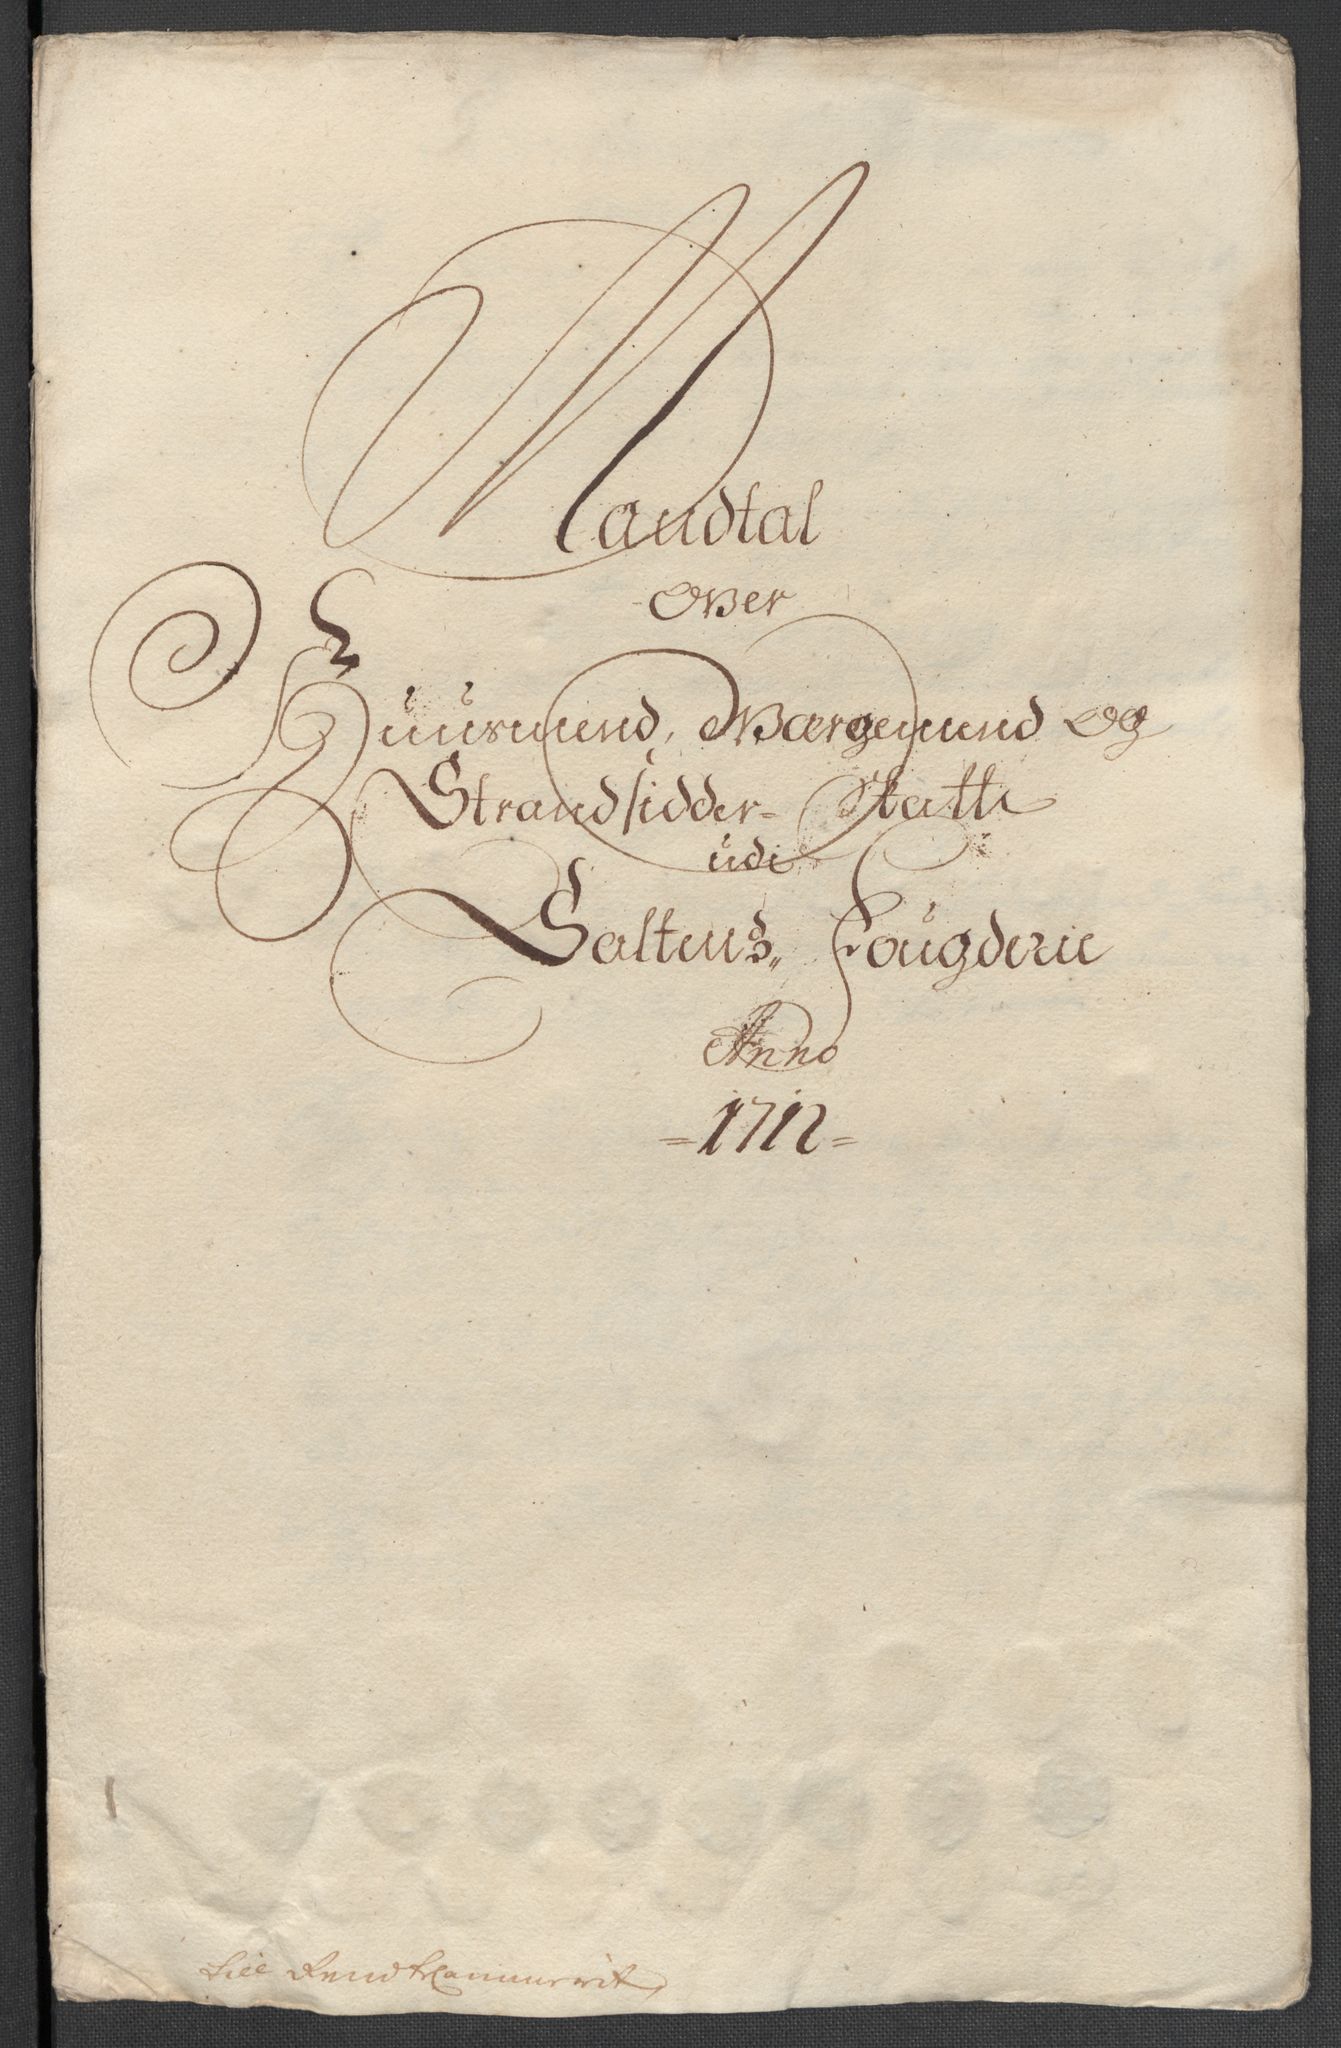 Mandtal
Over
Huusmend,Værgemend Og
Strandsidder- Skatte
udi
Saltens, Fougderie
Anno
=1712=
Till Rendtkammerrit